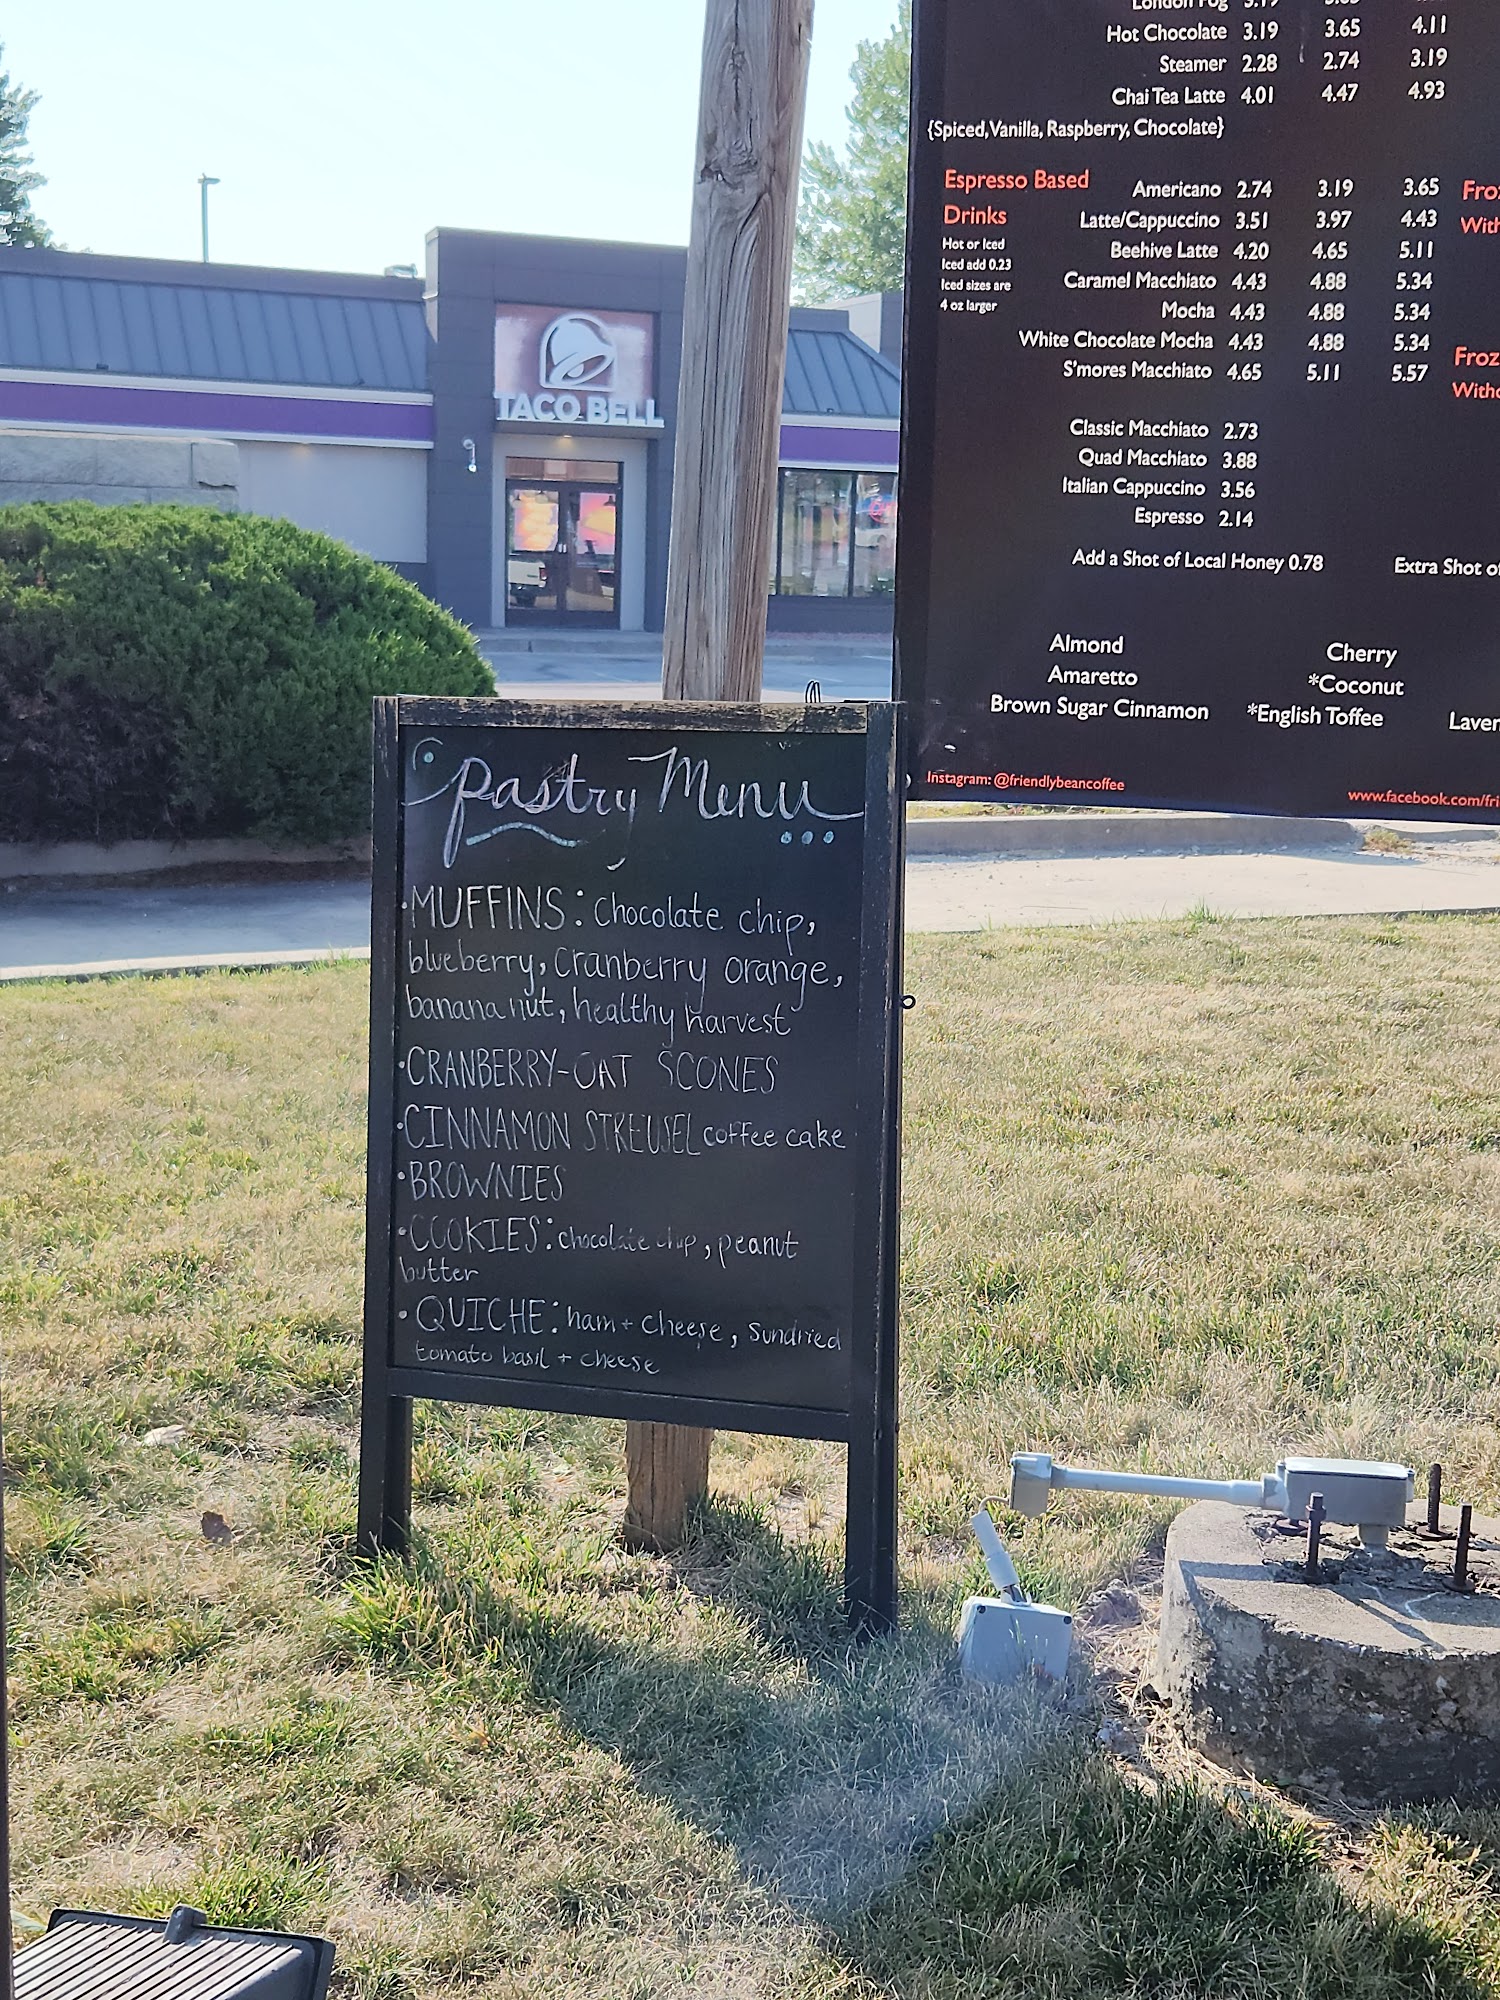 TACO BELL
London Fog 3.19
Hot Chocolate 3.19 3.65 4.11
Steamer 2.28 2.74 3.19
Chai Tea Latte 4.01 4.47 4.93
{Spiced, Vanilla, Raspberry, Chocolate}
Espresso Based
Drinks
Hot or Iced
Iced add 0.23
Iced sizes are
4 oz larger
Americano 2.74 3.19 3.65
Latte/Cappuccino 3.51 3.97 4.43
Beehive Latte 4.20 4.65 5.11
Caramel Macchiato 4.43 4.88 5.34
Mocha 4.43 4.88 5.34
White Chocolate Mocha 4.43 4.88 5.34
S'mores Macchiato 4.65 5.11 5.57
Fro
With
Froz
Witho
Classic Macchiato 2.73
Quad Macchiato 3.88
Italian Cappuccino 3.56
Espresso 2.14
Add a Shot of Local Honey 0.78 Extra Shot of
Almond Cherry
Amaretto *Coconut
Brown Sugar Cinnamon *English Toffee Laven
Instagram: @friendlybeancoffee www.facebook.com/fri
Pastry Menu
• MUFFINS: chocolate chip,
blueberry, cranberry orange,
banana nut, healthy harvest
• CRANBERRY-OAT SCONES
• CINNAMON STREUSEL coffee cake
• BROWNIES
• COOKIES: chocolate chip, peanut
butter
• QUICHE: ham + cheese, sundried
tomato basil + cheese